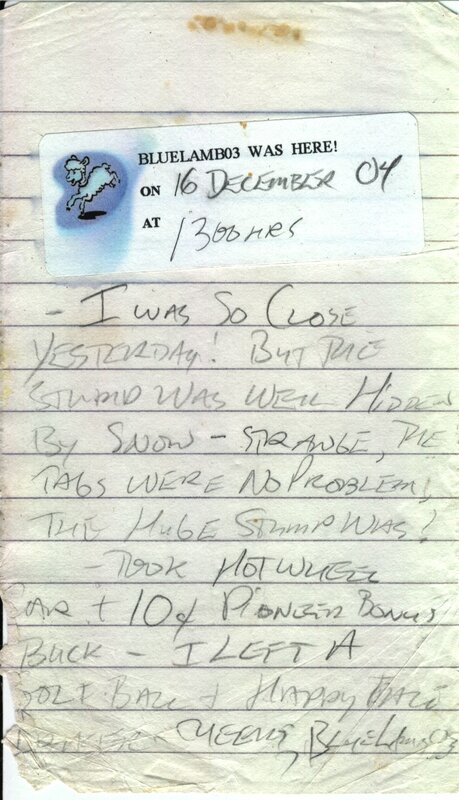 BLUELAMB03 WAS HERE!
ON 16 DECEMBER 04
AT 1300 HRS
- I WAS SO CLOSE
YESTERDAY! BUT THE
STUMP WAS WELL HIDDEN
BY SNOW - STRANGE, THE
TAGS WERE NO PROBLEM!
THE HUGE STUMP WAS!
- TOOK HOTWHEEL
CAR + 10¢ PIONEER BONUS
BUCK - I LEFT A
GOLF BALL + HAPPY FACE
CHEERS, BLUELAMB03